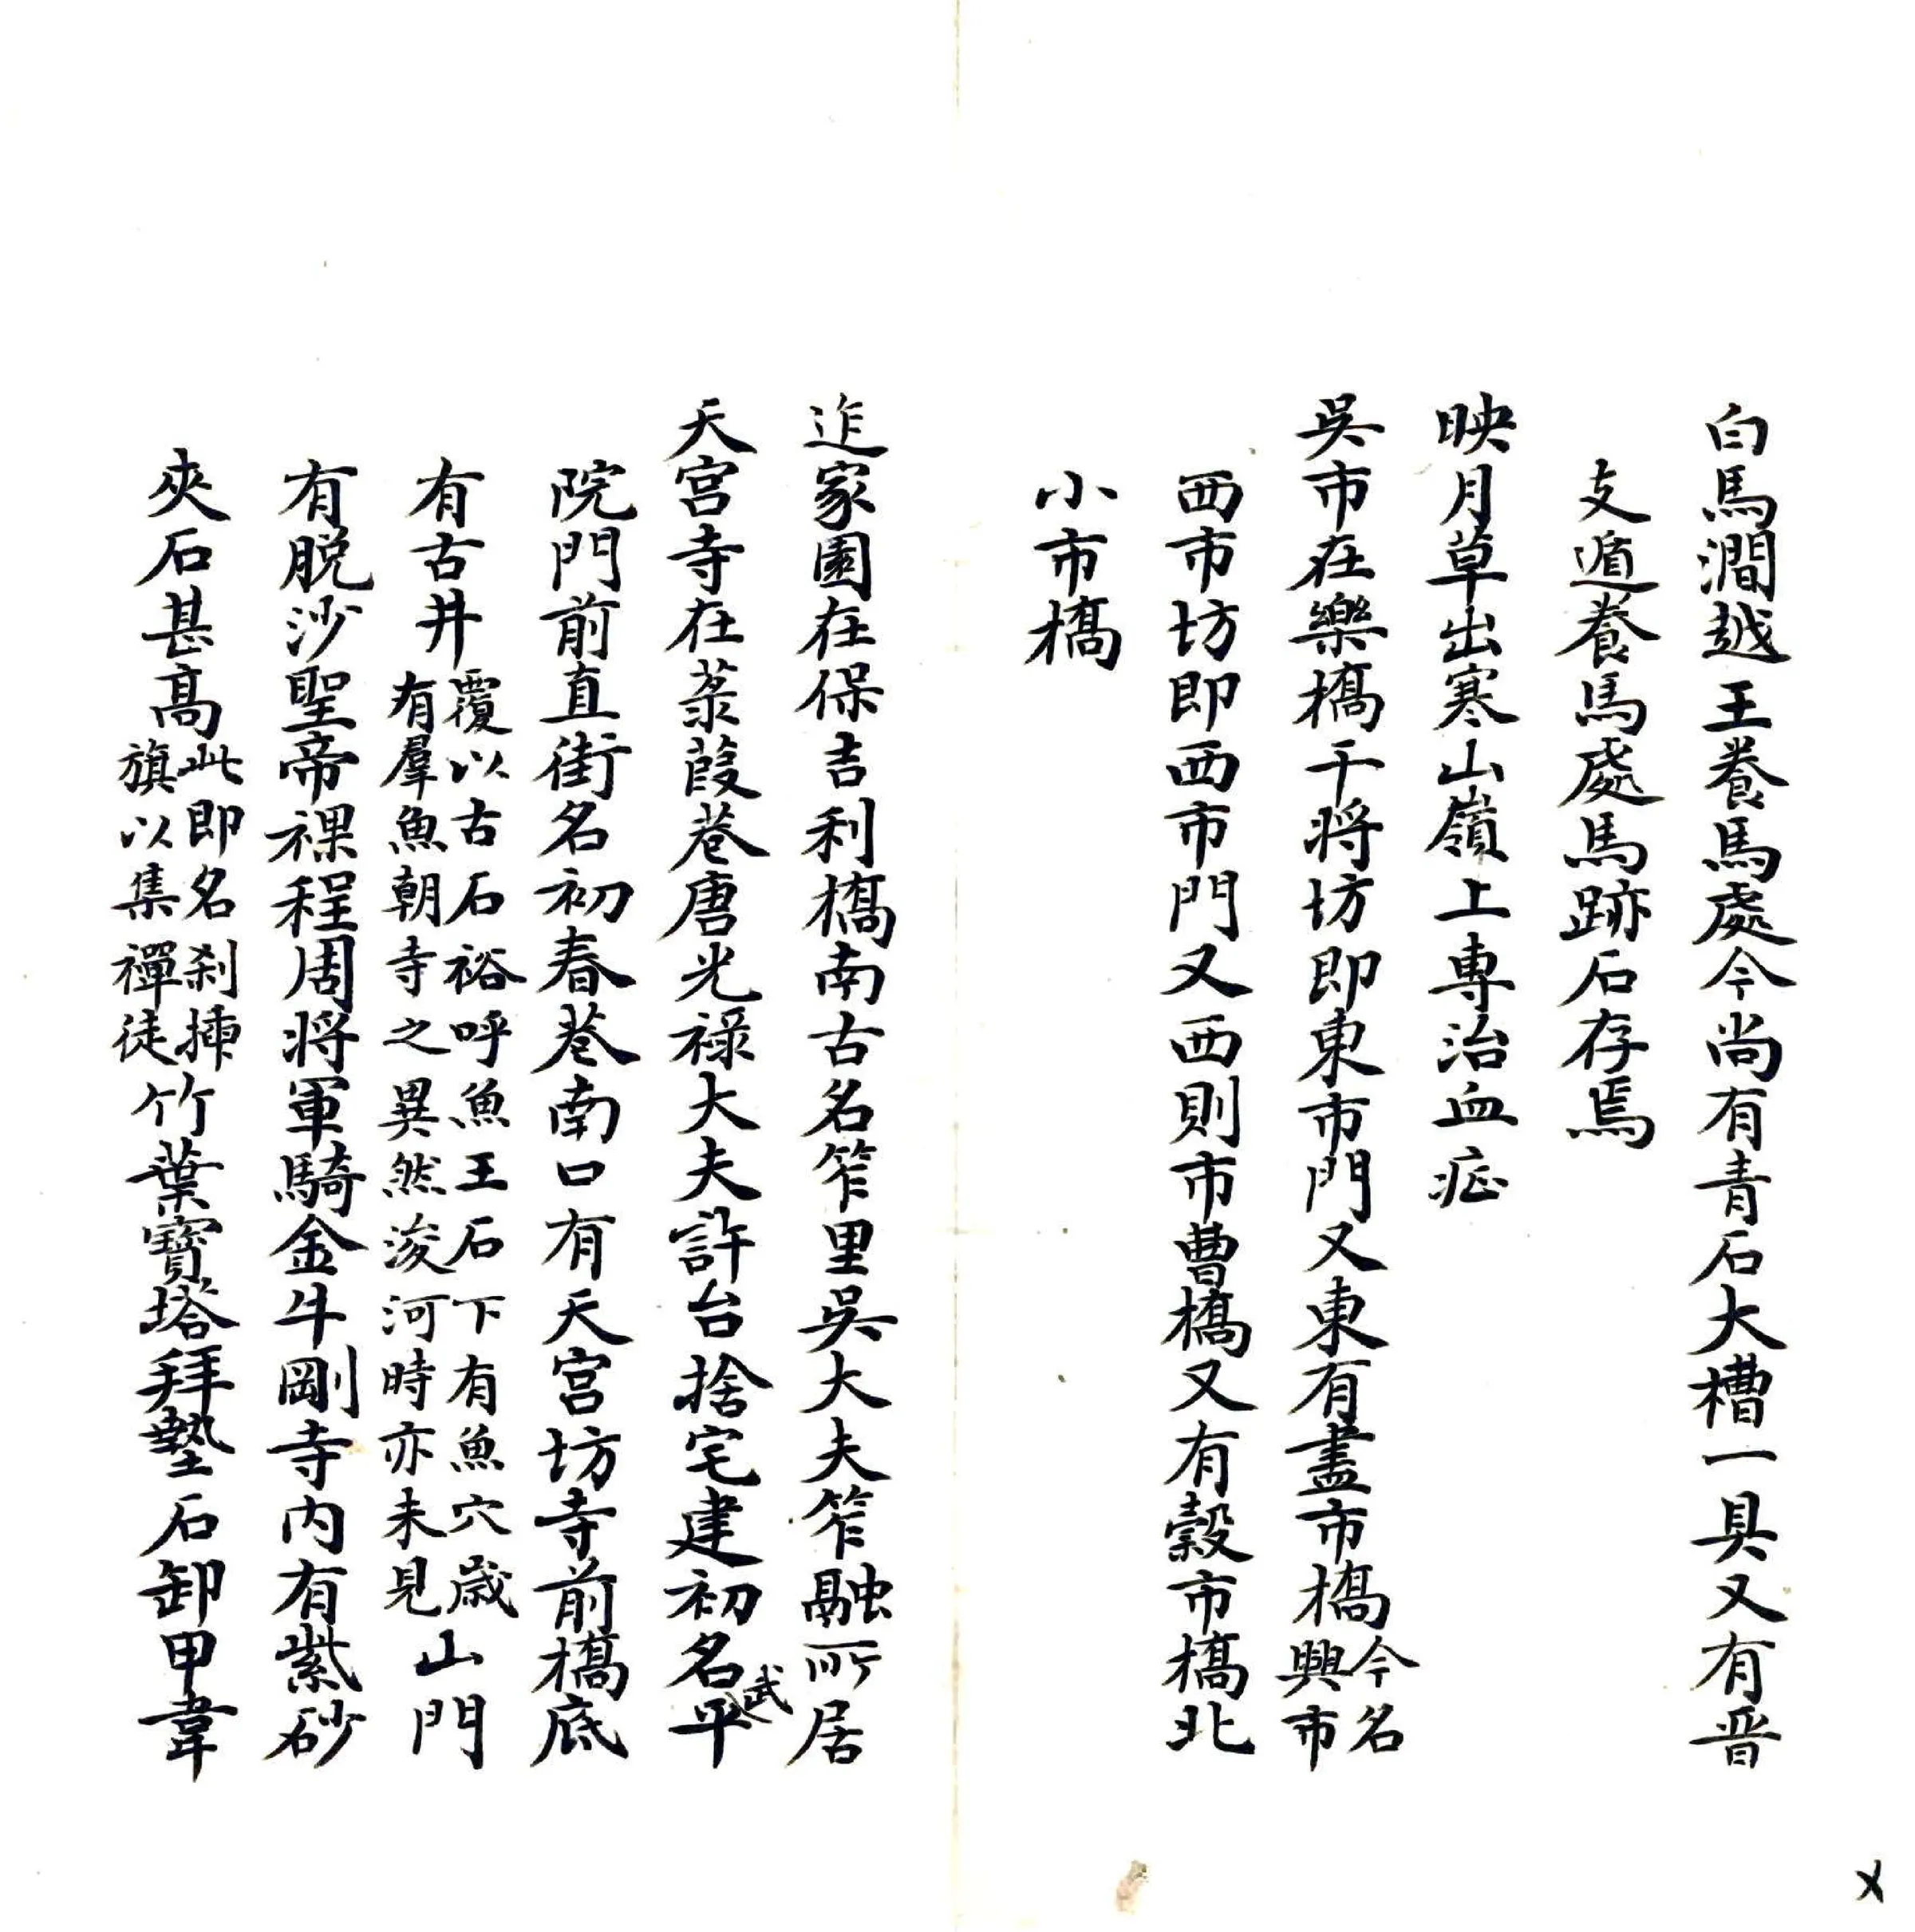 白馬澗越王養馬處今尚有青石大槽一具又有晋
支遁養馬處馬跡石存焉
映月草出寒山嶺上專治血症
吳市在樂橋干將坊即東市門又東有盡市橋今名
興市
西市坊即西市門又西則市曹橋又有穀市橋北
小市橋
迮家園在保吉利橋南古名笮里吳大夫笮融所居
天宮寺在菉葭巷唐光祿大夫許台捨宅建初名武平
院門前直街名初春巷南口有天宮坊寺前橋底
有古井覆以古石裕呼魚王石下有魚穴歲
有羣魚朝寺之異然浚河時亦未見山門
有脫沙聖帝裸程周將軍騎金牛剛寺內有紫砂
夾石甚高此即名刹揷
旗以集禪徒竹葉寶塔拜墊石卸甲韋